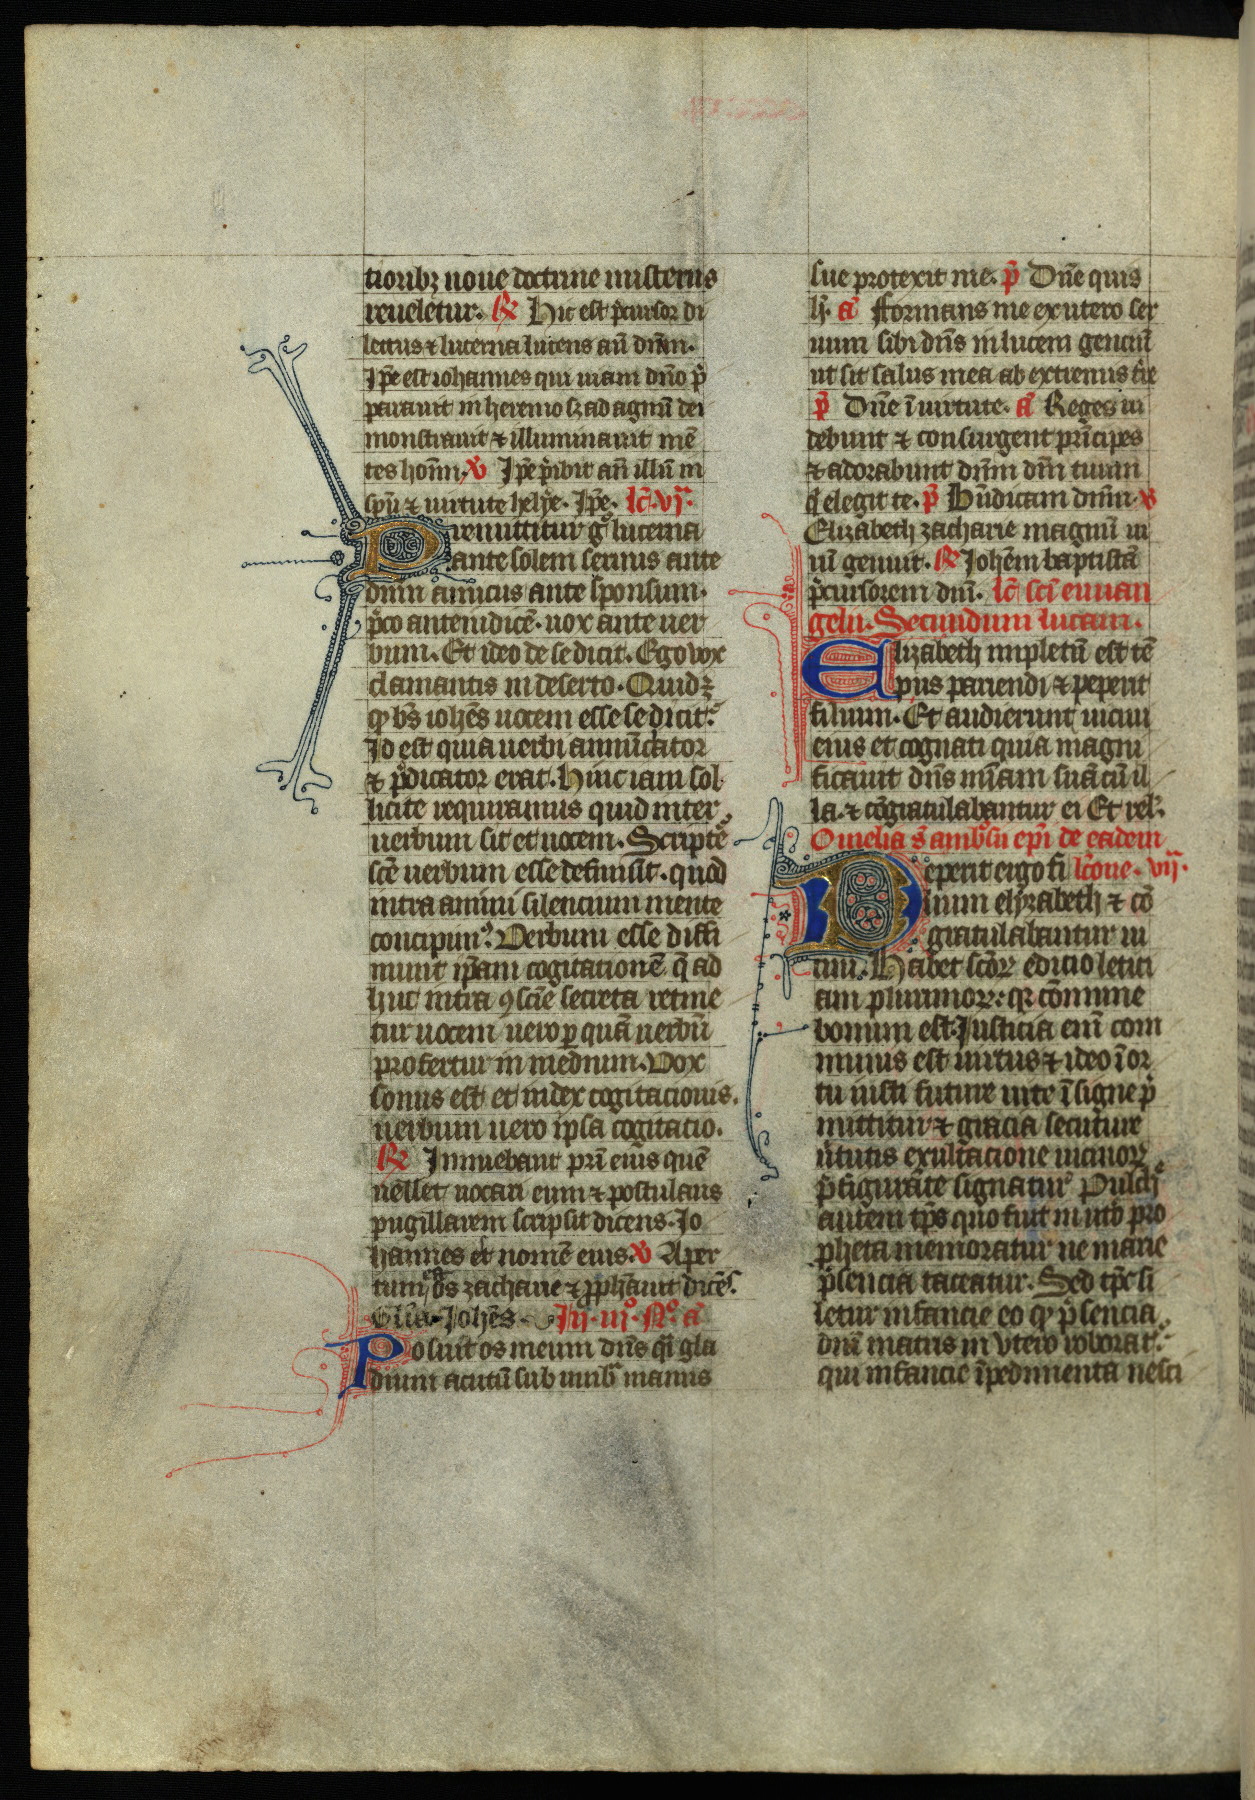 tioribꝫ noue doctrine misteriis
reueletur. R̃ Hic est p̃cursor di
lectus ⁊ lucerna lucens añ dñm.
Ip̃e est iohannes qui uiam dño p̃
parauit in heremo sꝫ ad agnũ dei
monstrauit ⁊ illuminauit mẽ
tes hoĩm. v̓ Ip̃e p̃ibit añ illũ in
sp̃u ⁊ uirtute helye. Ip̃e. lc̃. vj.
Premittitur gͦ lucerna
ante solem seruus ante
dñm amicus ante sponsum.
p̃co ante iudicẽ. uox ante uer
bum. Et ideo de se dicit. Ego vox
clamantis in deserto. Quid ꝫ
ꝙ bs̃ ioh̃es uocem esse se dicit.
Id est quia uerbi annũciator
⁊ p̃dicator erat. Hinc iam sol
licite requiramus quid inter
uerbum sit et uocem. Scriptẽ
sc̃e uerbum esse definisit. quod
intra animũ silencium mente
concipiun. Verbum esse diffi
niunt ip̃am cogitationẽ q̃ ad
huc intra ꝯscĩe secreta retine
tur uocem uero ꝑ quã uerbũ
profertur in medium. Vox
sonus est et index cogitacionis.
uerbum uero ipsa cogitatio.
R̃ Innuebant pr̃i eius quẽ
uellet uocari eum ⁊ postulans
pugillarem scripsit dicens. Jo
hannes ẽt nomẽ eius. v̓ Aper
tum ẽ os zacharie ⁊ ꝓph̃auit dicẽs.
Gl̃ia. Joh̃es. In. iijͦ. Nͦ. ã
Posuit os meum dñs q̃i gla
dium acutũ sub umb̃ manus
sue protexit me. p̃ Dñe quis
h̃. ã Formans me ex utero ser
uum sibi dñs in lucem genciũ
ut sit salus mea ab extremis t̃re
p̃ Dñe ĩ uirtute. ã Reges ui
debunt ⁊ consurgent pr̃icipes
⁊ adorabunt dñm dm̃ tuum
q̃ elegit te. p̃ Bñdicam dñm. v̓
Elizabeth zacharie magnũ ui
rũ genuit. R̃ Joh̃em baptistã
p̃cursorem dñi. lc̃ sc̃i euuan
gelii. Secundum lucam.
Elizabeth impletũ est tẽ
pus pariendi ⁊ peperit
filium. Et audierunt uicini
eius et cognati quia magni
ficauit dñs mĩam suã cũ il
la. ⁊ cõgratulabantur ei Et rel̃.
Omelia s̃ ambrosii ep̃i de eadem
Peperit ergo fi lc̃one. vij.
lium elyzabeth ⁊ cõ
gratulabantur ui
cini. Habet sc̃oꝝ edicio letici
am plurimoꝝ: qꝛ cõmune
bonum est. Justicia eni͂ com
munis est uirtus ⁊ ideo ĩ or
tu iusti future uite ĩsigne p̃
mittitur ⁊ gracia secuture
ũtutis exultacione uicinoꝝ
p̃figurãte signatur. Pulch̃
autem tp̃s quo fuit in utõ pro
pheta memoratur ne marie
p̃sencia taceatur. Sed tp̃s si
letur infancie eo ꝙ p̃sencia
dñi matris in vtero roborat.
qui infancie ĩpedimenta nesci